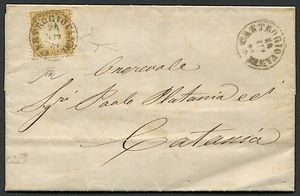 CASTROGIOVANNI
CASTROGIOVANNI
Onorevole
Sigr Paolo Platania e Ci
Catania